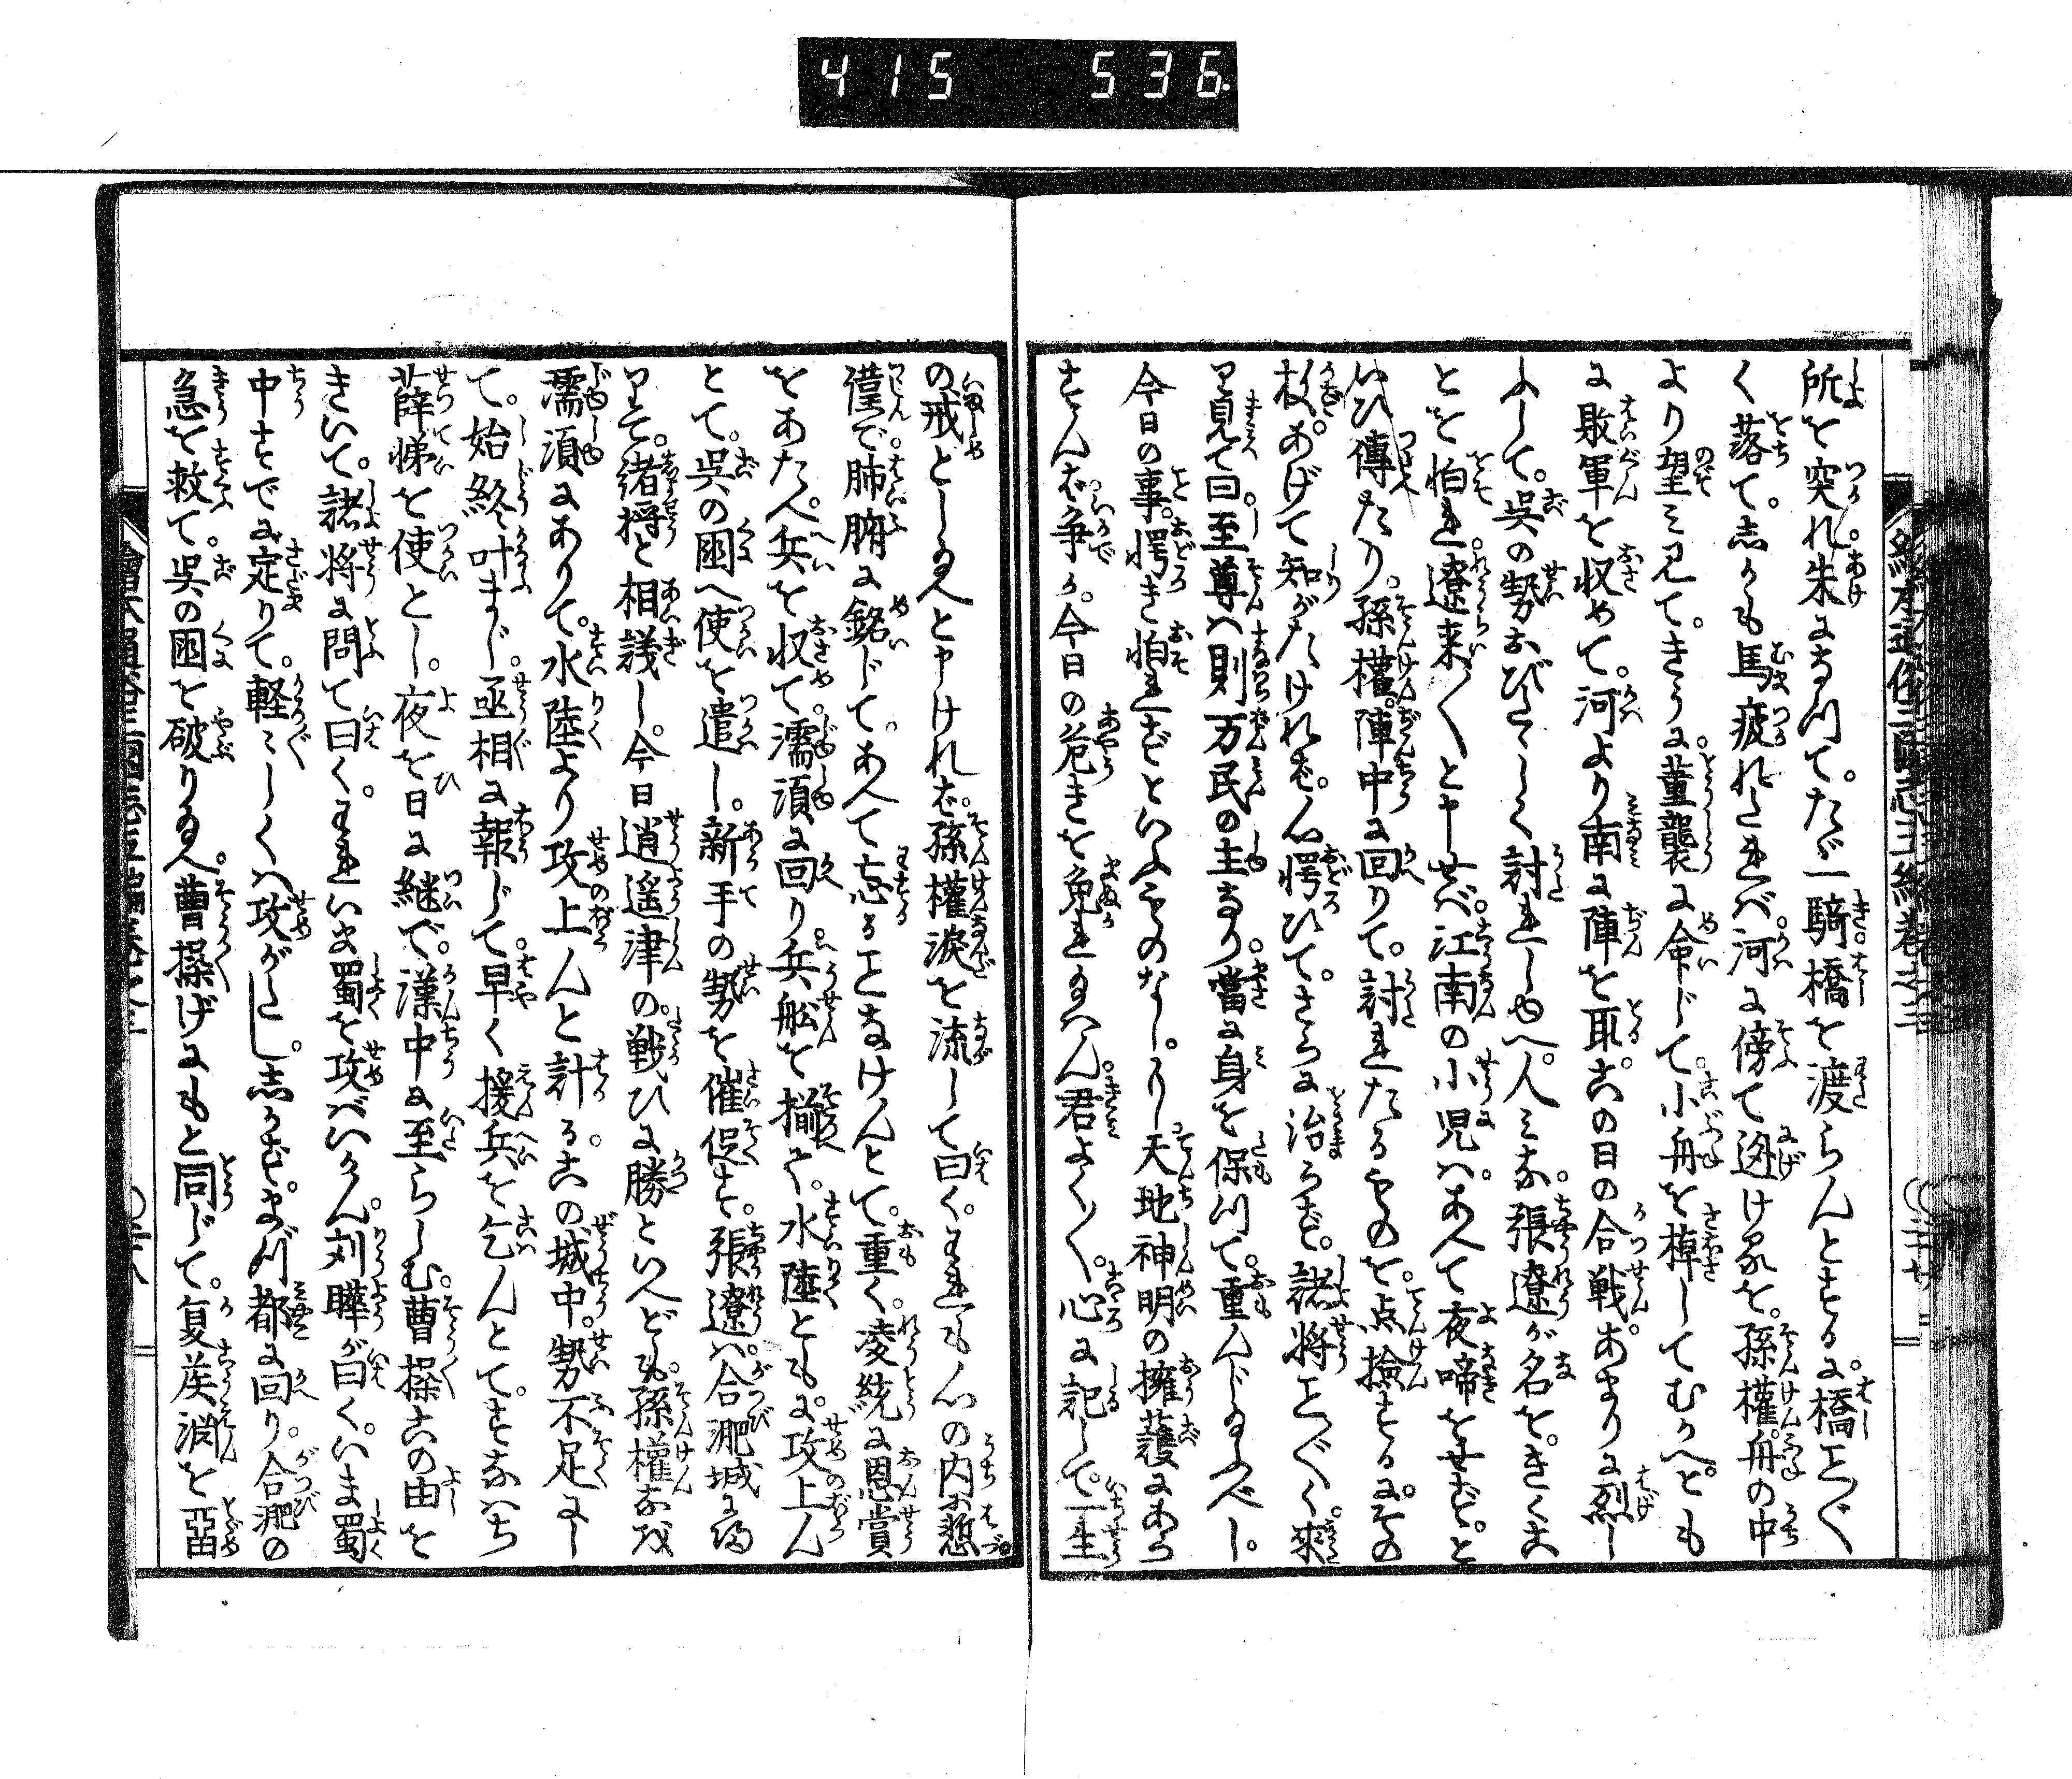 415 536
所を突れ。朱になつて。たゞ一騎。橋を渡らんとするに。橋こと〴〵
く落て。しかも馬疲れされバ。河に傍て迯けるを。孫權。舟の中
より望ミ見て。きうに。董襲に命じて。小舟を棹してむかへ。とも
に敗軍を収めて。河より南に陣を取。この日の合戦。あまりに烈し
ふして。呉の勢おびたゝしく討れしゆへ。人ミな。張遼が名を。きくこ
とを怕れ。遼来〳〵と申せバ。江南の小児ハ。あへて夜啼をせず。と
いひ傳たり。孫權。陣中に回りて。討れたるものを。点撿するに。その
枚。あげて知がたけれバ。心愕ひて。さらに治らず。諸将こと〴〵く。來
り見て曰。至尊ハ則万民の主なり。當に身を保つて。重んじ給ふべし。
今日の事。愕き怕れずといふものなし。もし天地神明の擁護にあら
ずんバ。争か。今日の危きを免れ給ハん。君よく〳〵。心に記して。一生
の戒とし給へと申けれバ。孫權涙を流して曰く。われも心の内に慙
僅で。肺腑に銘じて。あへて忘ることなけんとて。重く。凌統に恩賞
をあたへ。兵を収て。濡須に回り。兵舩を揃へて。水陸ともに。攻上ん
とて。呉の国へ使を遣し。新手の勢を催促す。張遼ハ。合淝城に帰
りて。諸将と相議し。今日逍遥津の。戦ひに勝といへども。孫權なを
濡須にありて。水陸より攻上んと計る。この城中。勢不足にし
て。始終叶まじ。丞相に報じて。早く援兵を乞んとて。すなハち
薛悌を使とし。夜を日に継で。漢中に至らしむ。曹操この由を
きいて。諸将に問て曰く。われいま蜀を攻べけん。刘曄が曰く。いま蜀
中すでに定りて。軽〻しくハ攻がたし。しかず。まづ都に回り。合淝の
急を救て。呉の国を破り給へ。曹操げにもと同じて。夏侯渊を留